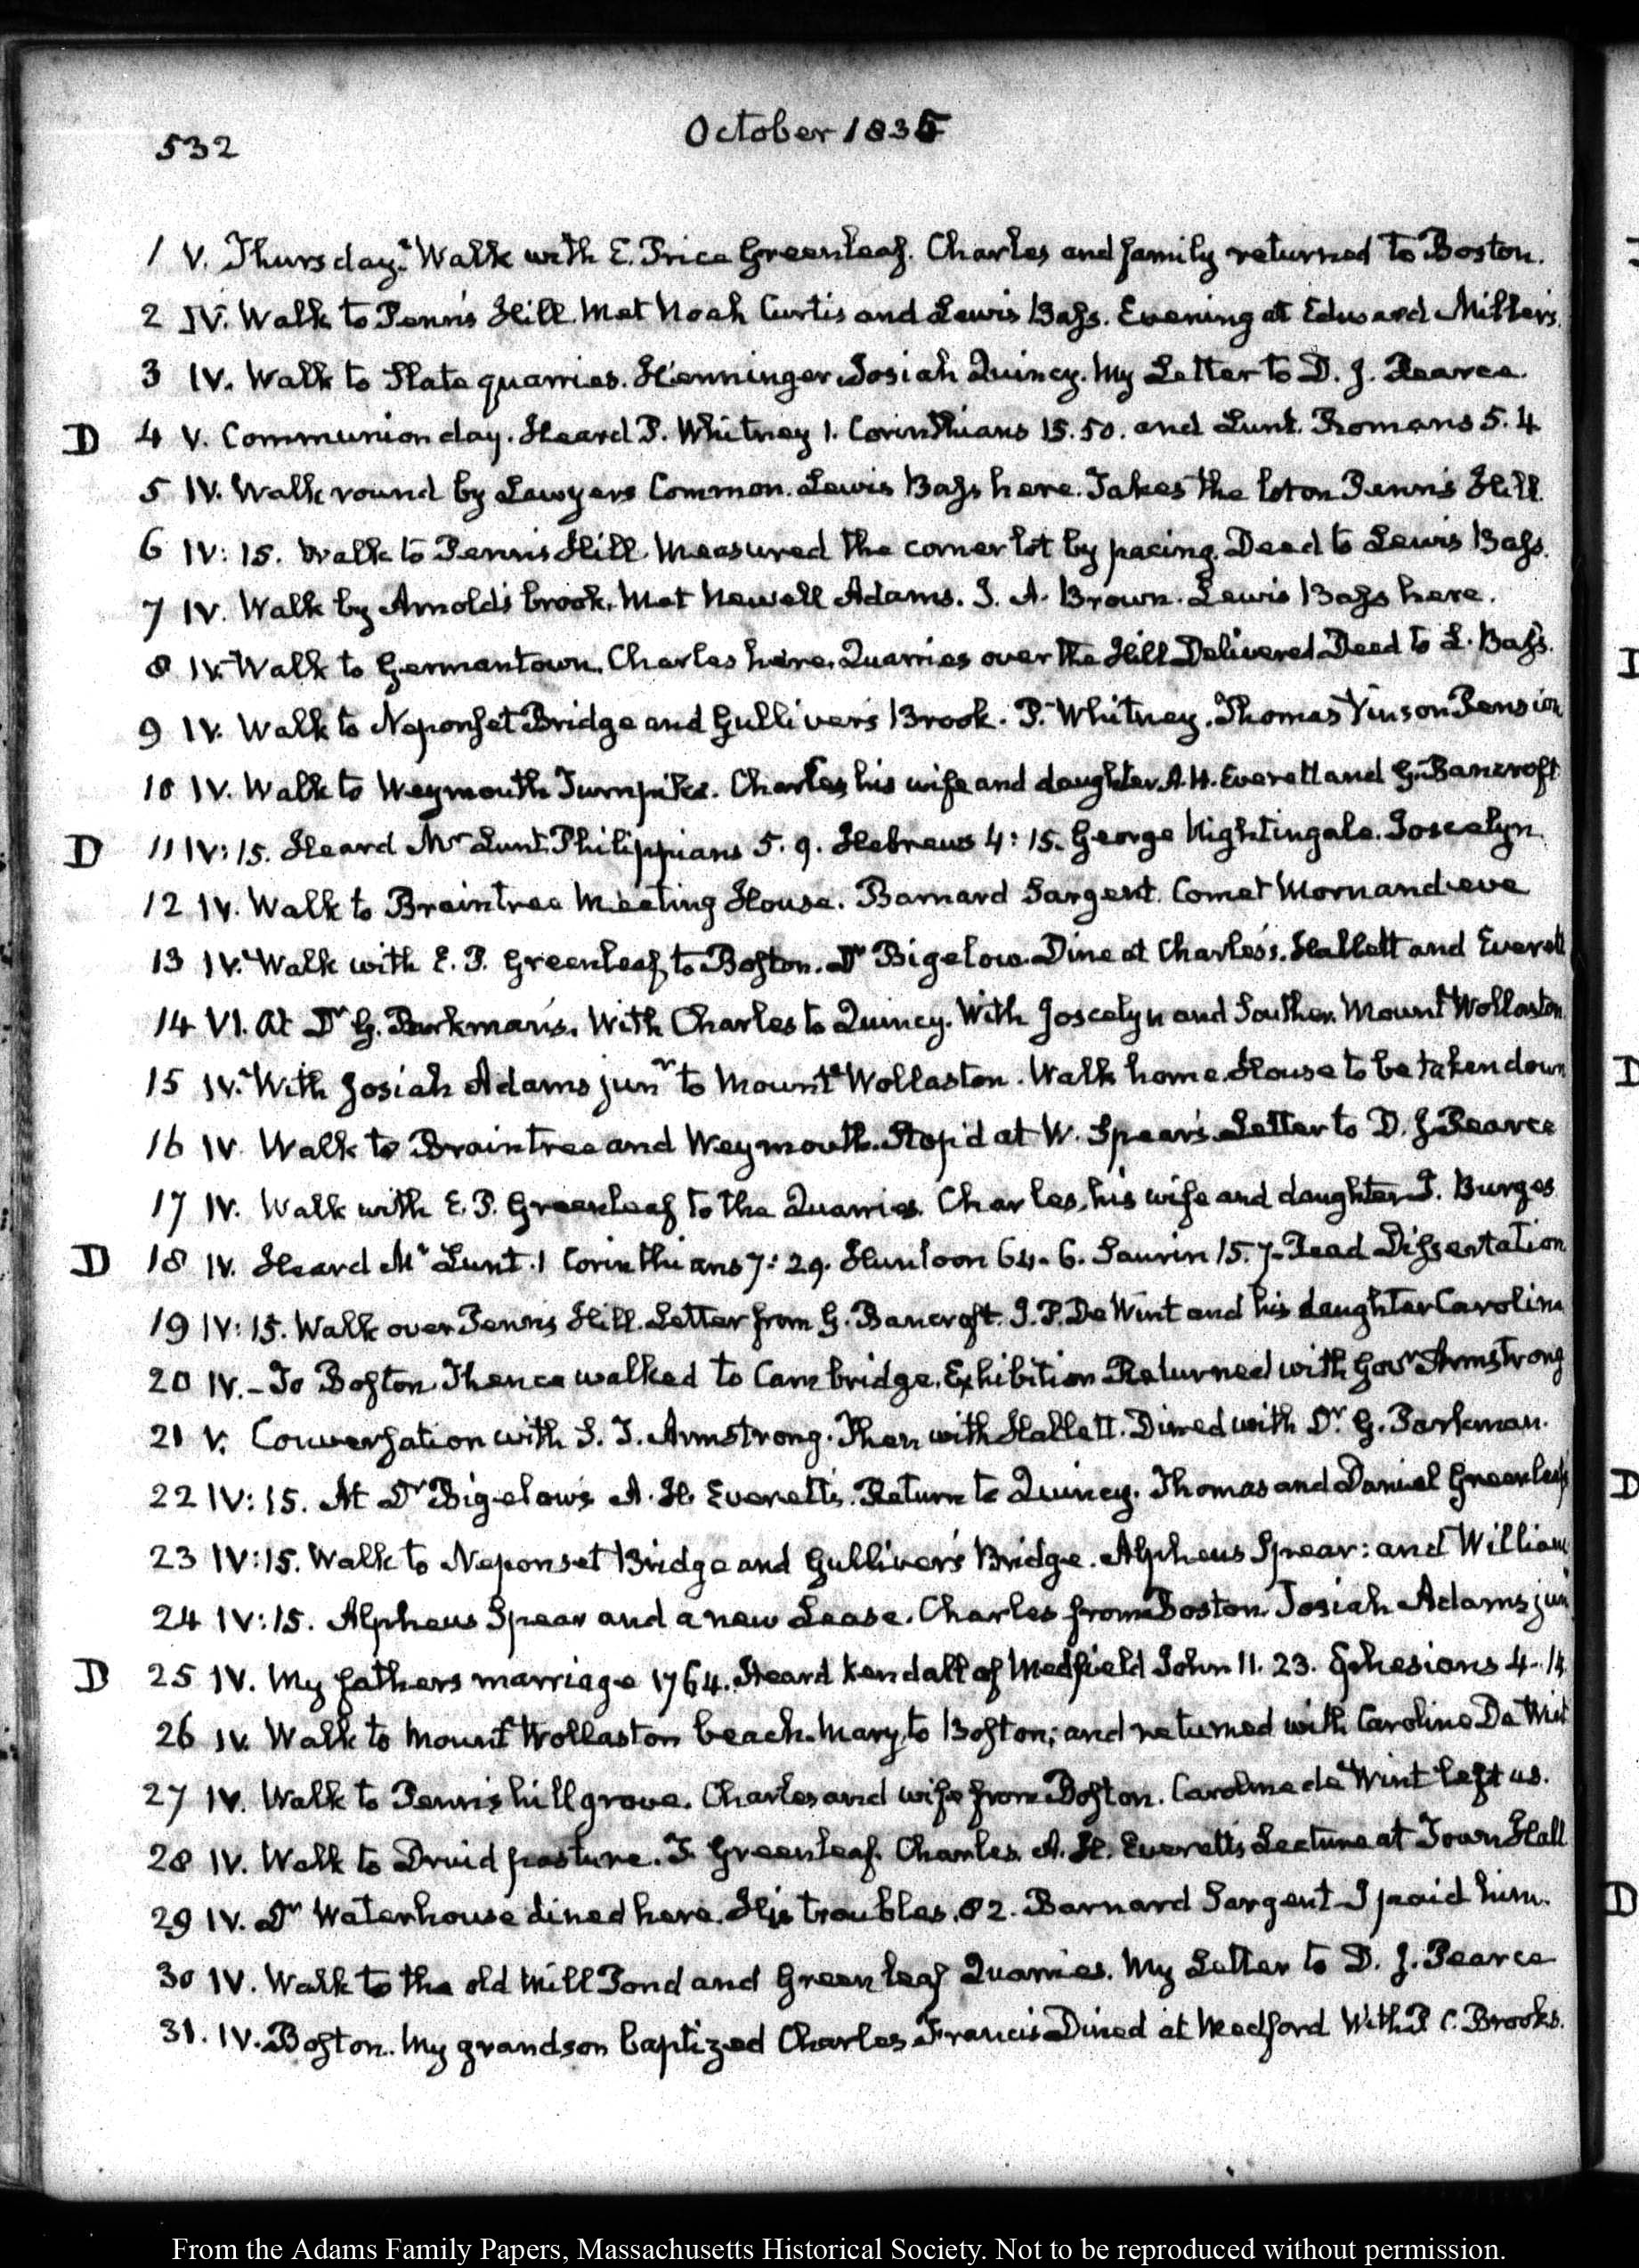 532
October 1835
1 V. Thursday. Walk with E. Price Greenleaf. Charles and family returned to Boston.
2 IV. Walk to Penn's Hill. Met Noah Curtis and Lewis Bass. Evening at Edward Miller's.
3 IV. Walk to Slate quarries. Henninger Josiah Quincy. My Letter to D. J. Pearce.
D 4 V. Communion day. Heard P. Whitney 1. Corinthians 15.50. and Lunt. Romans 5.4
5 IV. Walk round by Lawyers Common. Lewis Bass here. Takes the lot on Penn's Hill.
6 IV: 15. Walk to Penns Hill. Measured the corner lot by pacing. Deed to Lewis Bass.
7 IV. Walk by Arnold's brook. Met Newell Adams. J. A. Brown. Lewis Bass here.
8 IV. Walk to Germantown. Charles here. Quarries over the Hill Delivered Deed to L. Bass.
9 IV. Walk to Neponset Bridge and Gulliver's Brook. P. Whitney. Thomas Vinson Pension
10 IV. Walk to Weymouth Turnpike. Charles, his wife and daughter. A. H. Everett and G. Bancroft
D 11 IV: 15. Heard Mr Lunt. Philippians 5. 9. Hebrews 4: 15. George Nightingale. Joscelyn.
12 IV. Walk to Braintree Meeting House. Barnard Sargent. Comet Morn and eve
13 IV. Walk with E. P. Greenleaf, to Boston. Dr Bigelow Dine at Charles's. Hallett and Everett
14 VI. At Dr G. Parkman's. With Charles to Quincy. With Joscelyn and Souther. Mount Wollaston
15 IV. With Josiah Adams junr to Mount Wollaston. Walk home. House to be taken down
16 IV. Walk to Braintree and Weymouth. Stop'd at W. Spear's. Letter to D. J. Pearce
17 IV. Walk with E. P. Greenleaf to the Quarries. Charles, his wife and daughter T. Burges
D 18 IV. Heard Mr Lunt. 1 Corinthians 7: 29. Huntoon 64. 6. Saurin 15. 7. Read Dissertation
19 IV: 15. Walk over Penns Hill. Letter from G. Bancroft. J. P. De Wint and his daughter Caroline
20 IV. - To Boston Thence walked to Cambridge. Exhibition Returned with Govr Armstrong
21 V. Conversation with S. T. Armstrong. Then with Hallett. Dined with Dr. G. Parkman.
22 IV: 15. At Dr Bigelow's A. H. Everett's. Return to Quincy. Thomas and Daniel Greenleaf
23 IV: 15. Walk to Neponset Bridge and Gulliver's Bridge. Alpheus Spear: and William
24 IV: 15. Alpheus Spear and a new Lease. Charles from Boston. Josiah Adams jun
D 25 IV. My fathers marriage 1764. Heard Kendall of Medfield John 11. 23. Ephesians 4. 14
26 IV. Walk to Mount Wollaston beach. Mary to Boston; and returned with Caroline De Wint
27 IV. Walk to Penn's hill grove. Charles and wife from Boston. Caroline de Wint left us.
28 IV. Walk to Druid pasture. T. Greenleaf. Charles. A. H. Everett's Lecture at Town Hall
29 IV. Dr Waterhouse dined here. His troubles. 82. Barnard Sargent I paid him.
30 IV. Walk to the old Mill Pond and Greenleaf Quarries. My Letter to D. J. Pearce
31. IV. Boston. My grandson baptized Charles Francis Dined at Medford With P. C. Brooks.
From the Adams Family Papers, Massachusetts Historical Society. Not to be reproduced without permission.